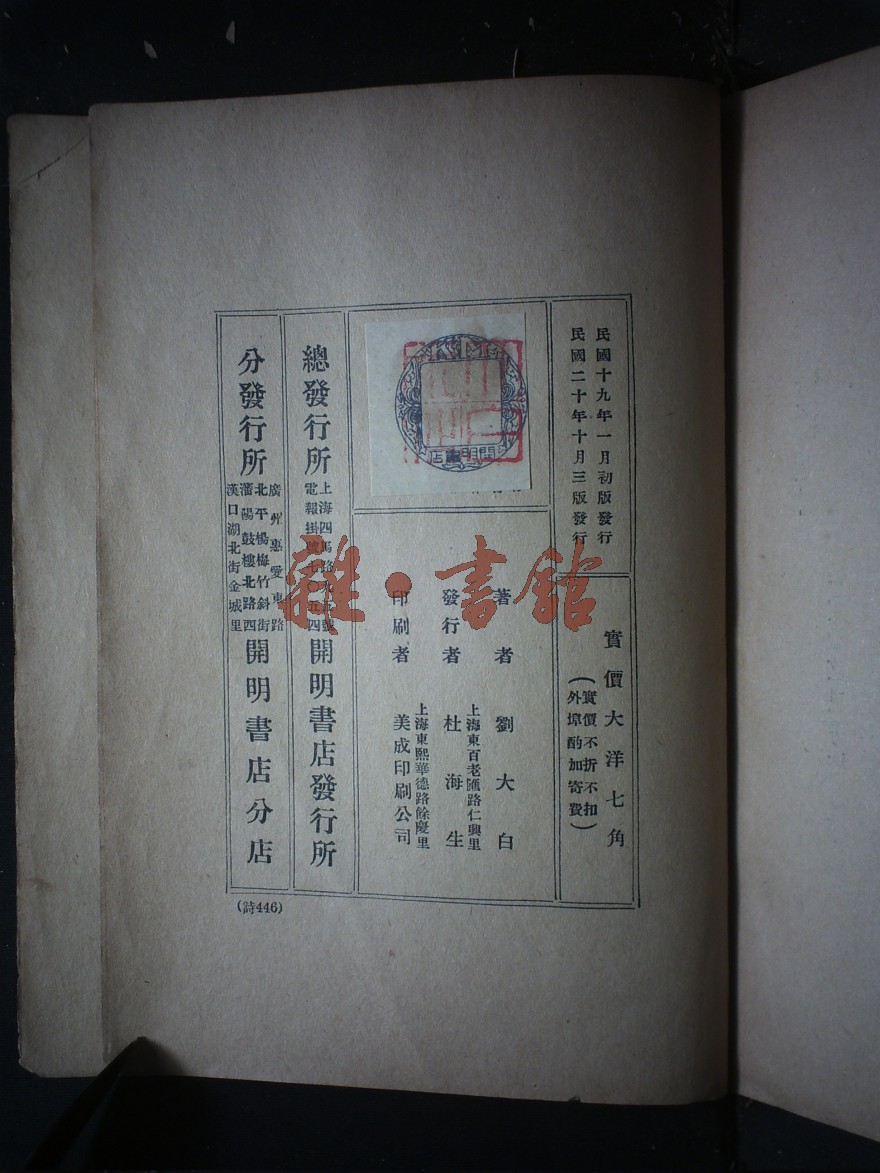 民國十九年一月初版發行
民國二十年十月三版發行
實價大洋七角
(實價不折不扣
外埠酌加寄費)
開明書店
著者 劉大白
發行者 杜海生
上海東百老匯路仁興里
印刷者 美成印刷公司
上海東熙華德路餘慶里
總發行所
上海四馬路九五號
電報掛號七〇五四
開明書店發行所
分發行所
廣州惠愛東路
北平楊梅竹斜街
瀋陽鼓樓北路西
漢口湖北街金城里
開明書店分店
(詩446)
雜·書館